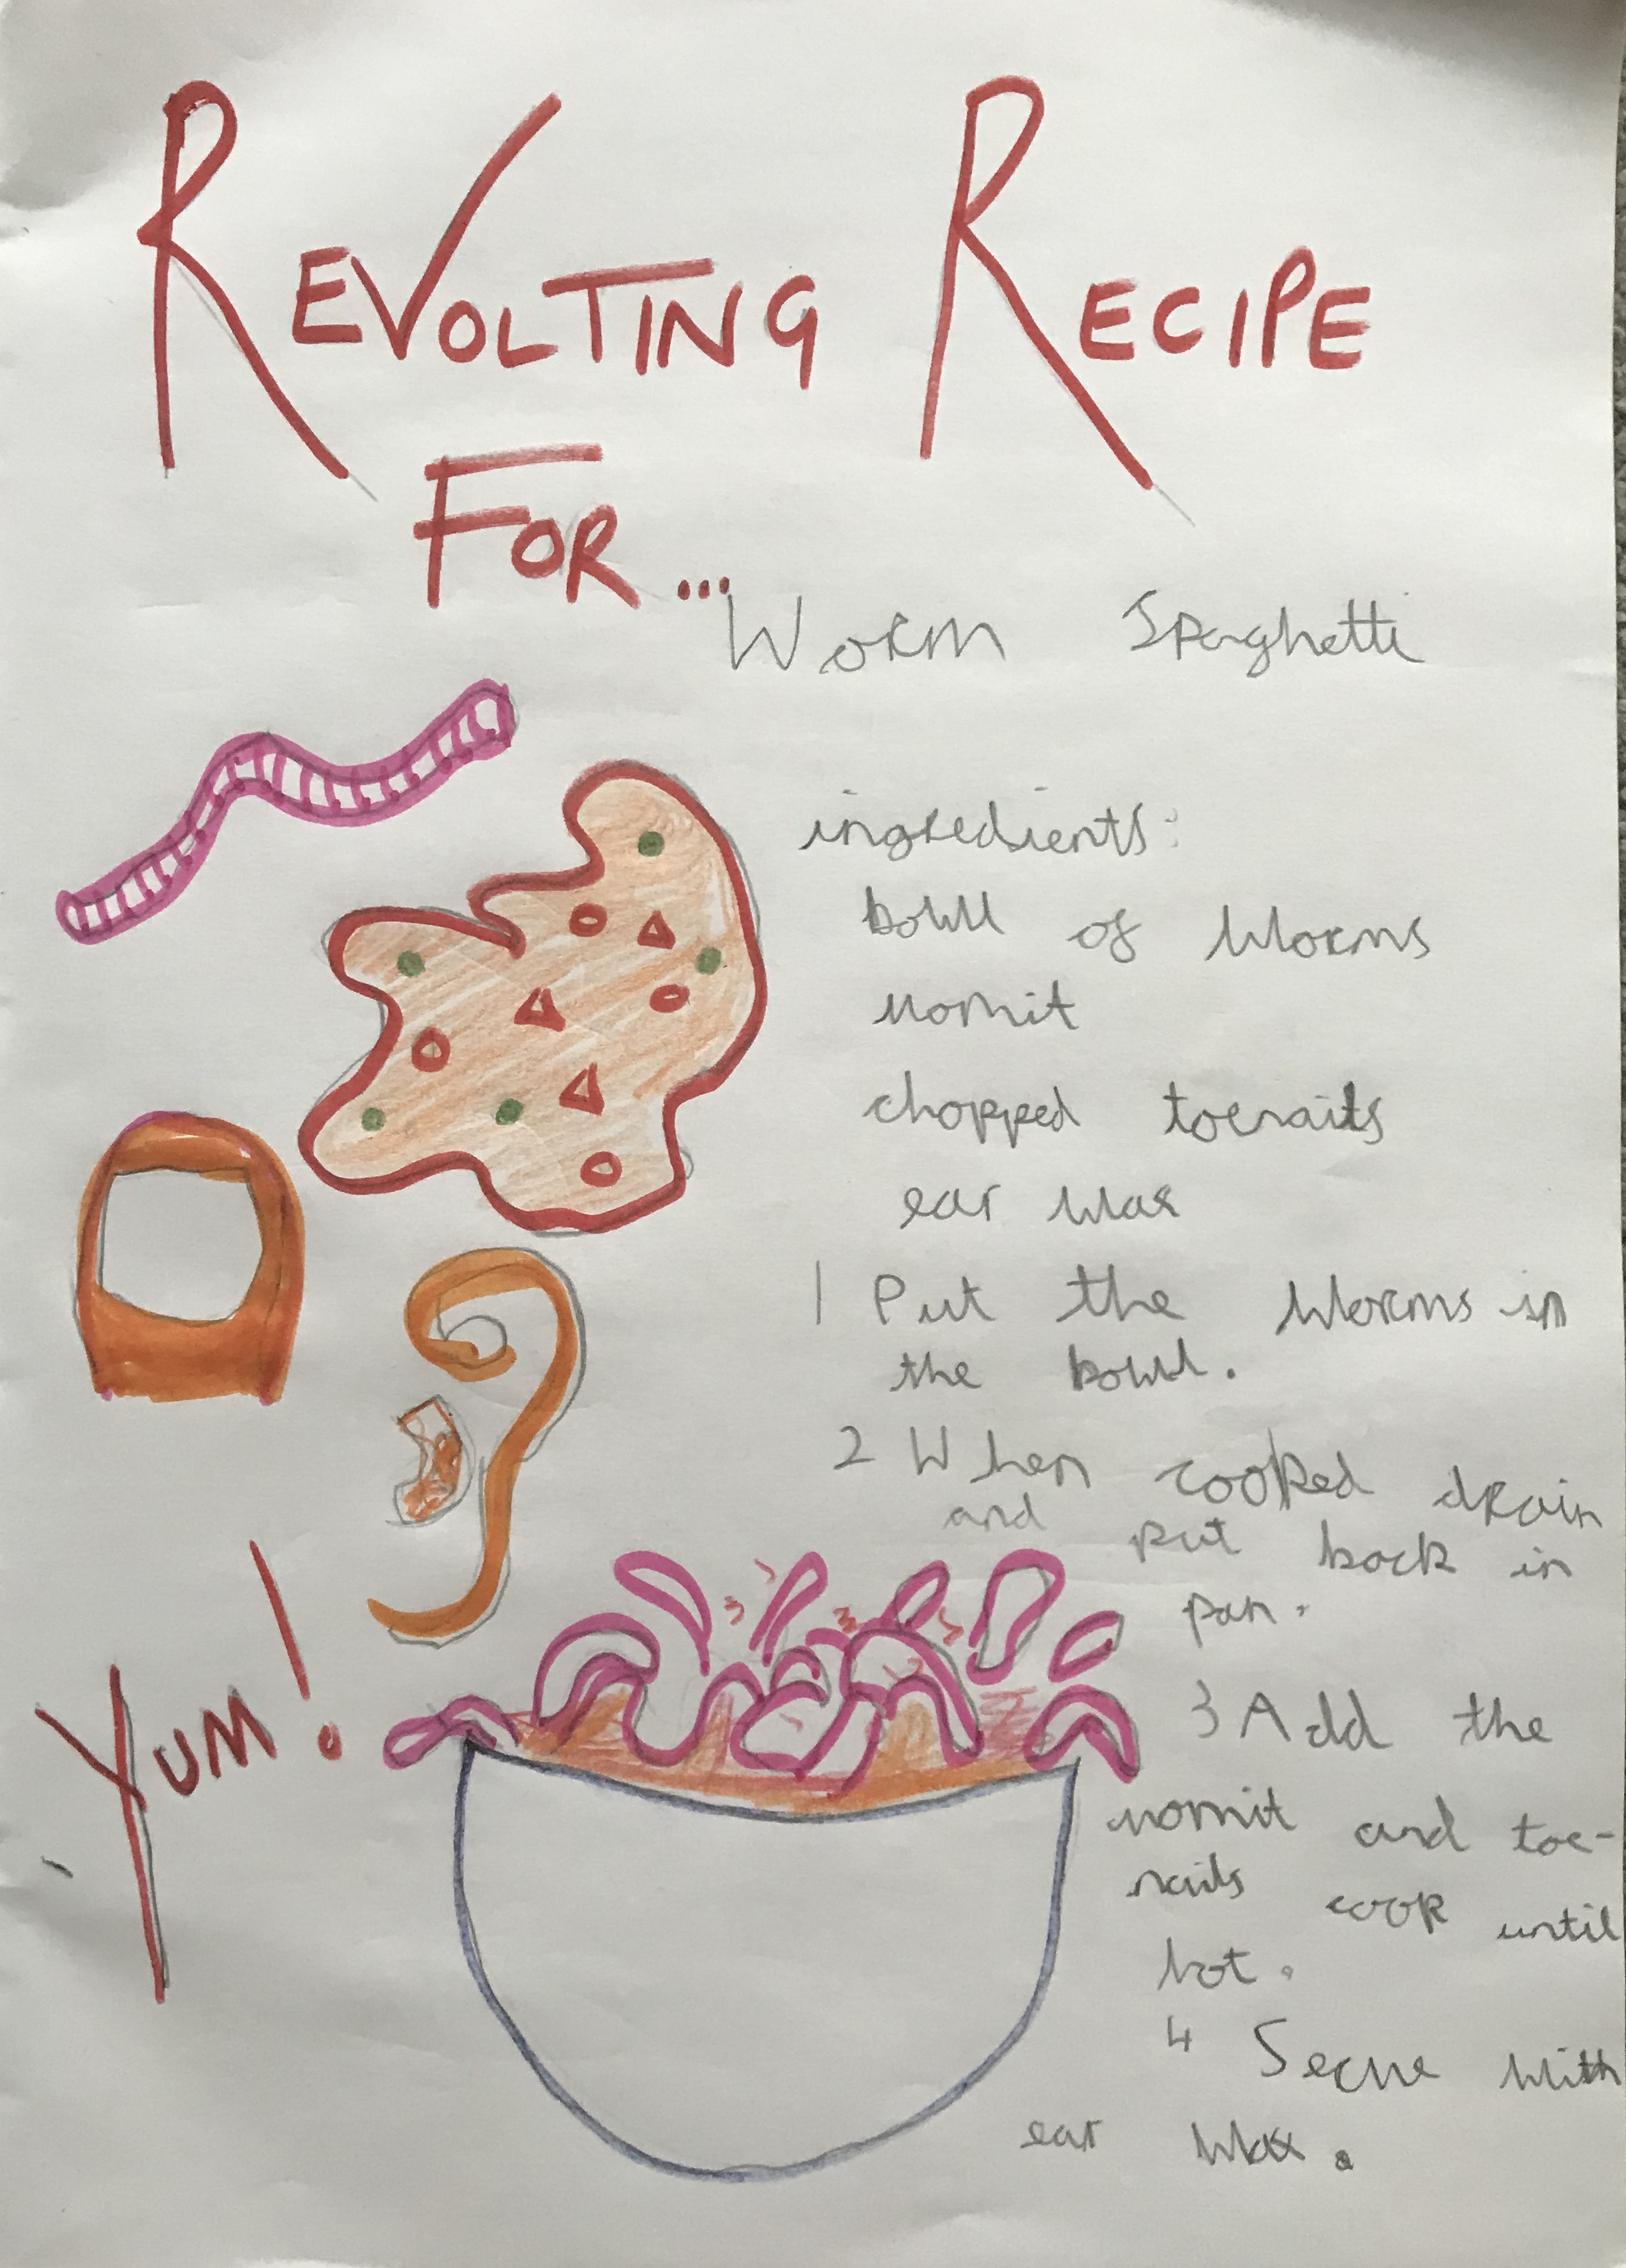 REVOLTING RECIPE
FOR...
Worm Spaghetti
ingredients:
bowl of worms
vomit
chopped toenails
ear wax
1 Put the worms in
the bowl.
2 When cooked drain
and put back in
pan.
3 Add the
vomit and toe-
nails cook until
hot.
4 Serve with
ear wax.
YUM!